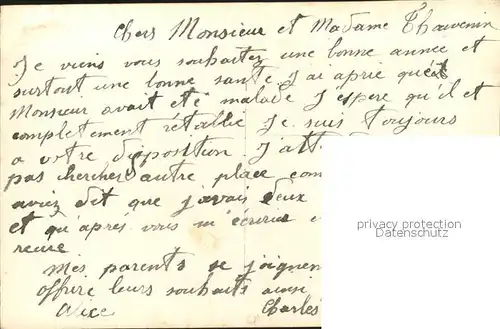 Chers Monsieur et Madame Thauvenin
Je viens vous souhaitez une bonne année et
surtout une bonne santé J'ai aprie que
Monsieur avait eté malade J'espere qu'il et
completement rétablie Je suis toujours
a votre disposition J'att
pas cherchez autre place com
aviez dit que j'avais deux
et qu'après vous m'écrirez
reuse
Mes parents se joignen
offrire leurs souhaits aussi
Alice Charles
privacy protection
DATENSCHUTZ